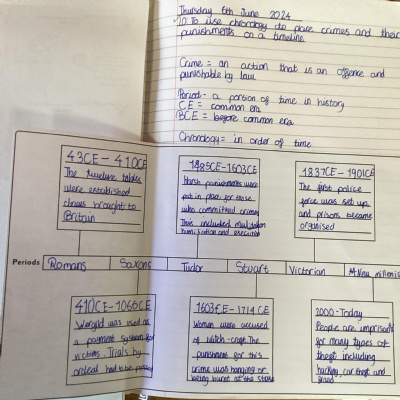 Thursday 6th June 2024
LO: To use chronology to place crimes and their
punishments on a timeline.
Crime = an action that is an offence and
punishable by law.
Period - a portion of time in history
CE = common era
BCE = before common era
Chronology = in order of time
43CE - 410CE
The twelve tables
were established
laws brought to
Britain
1485CE-1603CE
Harsh punishments were
put in place for those
who committed crimes
This included mutilation
humiliation and execution
1837CE - 1901CE
The first police
force was set up
and prisons became
organised
Periods
Romans
Saxons
Tudor
Stuart
Victorian
New millenni
410CE-1066CE
Wergild was used as
a payment system for
victims. Trials by
ordeal had to be passed
1603CE-1714CE
Women were accused
of witch-craft. The
punishment for this
crime was hanging or
being burnt at the stake
2000-Today
People are imprison
for many types of
theft including
hacking, car theft and